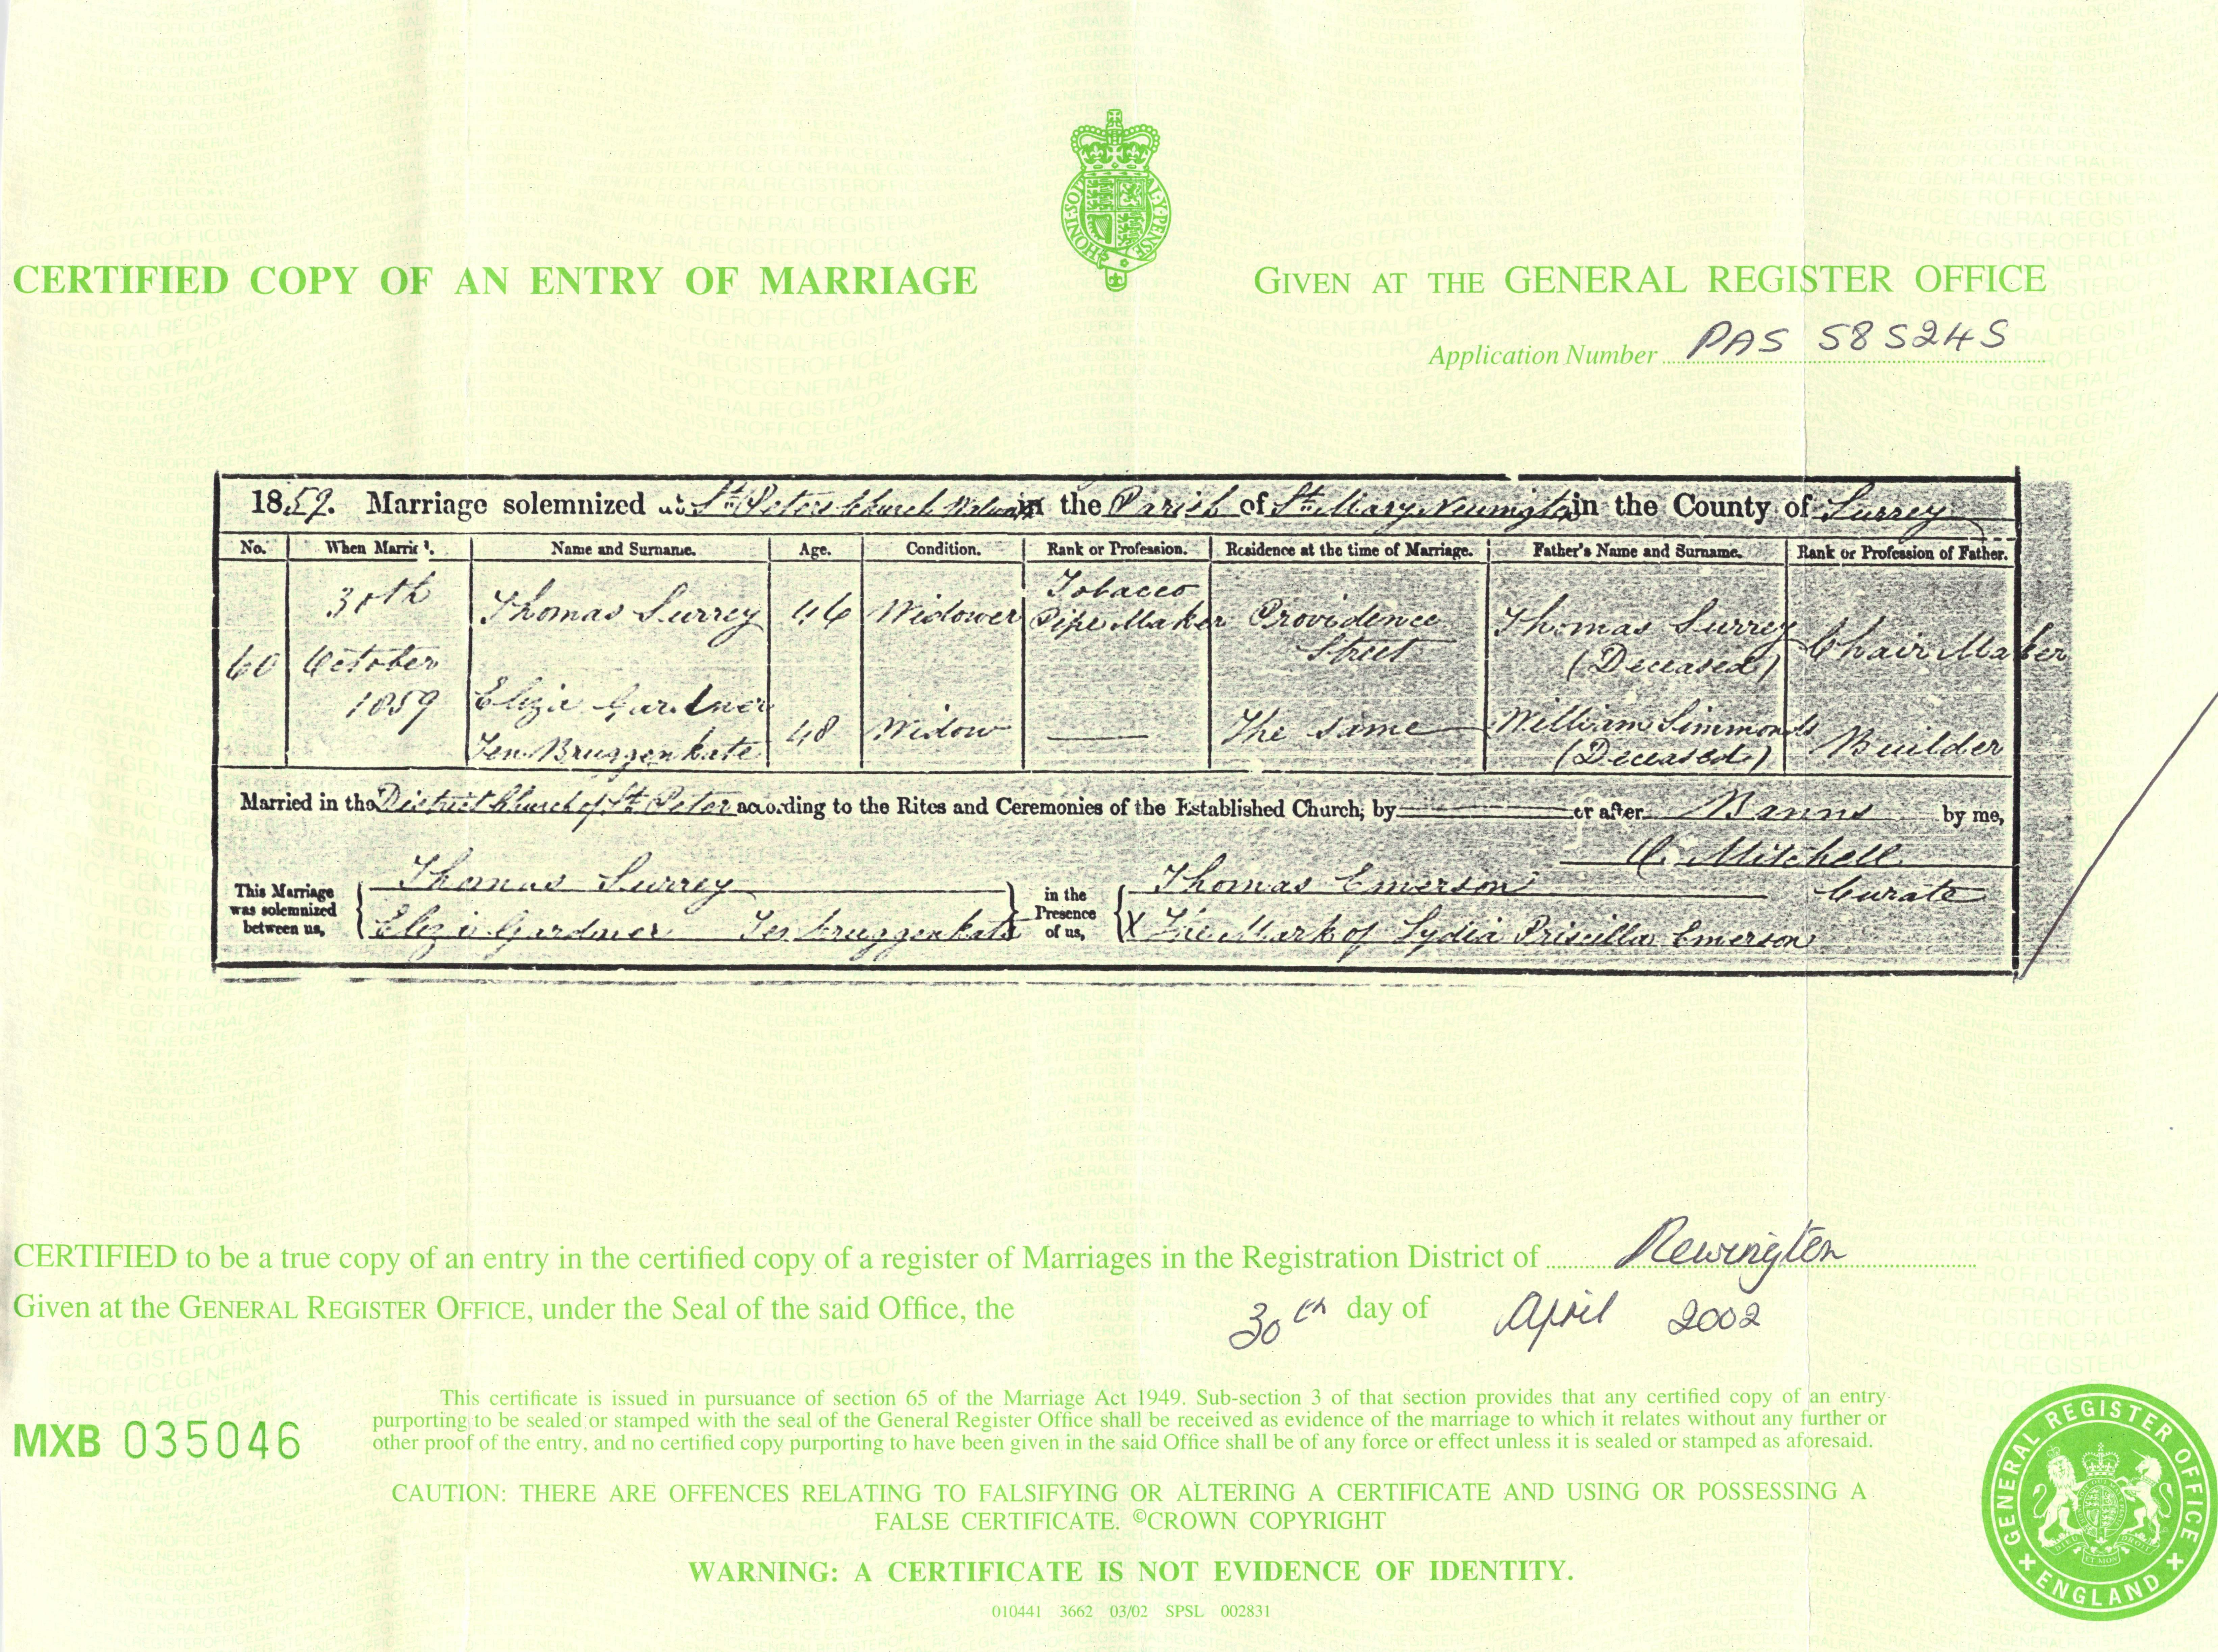 HONI·SOIT·Q·MAL·Y·PENSE
CERTIFIED COPY OF AN ENTRY OF MARRIAGE
GIVEN AT THE GENERAL REGISTER OFFICE
Application Number PAS 585245
1859. Marriage solemnized at St Peters Church Walworth in the Parish of St Mary Newington in the County of Surrey
No. When Married. Name and Surname. Age. Condition. Rank or Profession. Residence at the time of Marriage. Father's Name and Surname. Rank or Profession of Father.
60 30th October 1859 Thomas Surrey 46 Widower Tobacco Pipe Maker Providence Street Thomas Surrey (Deceased) Chair Maker
Eliza Gardner Ten Bruggenkate 48 Widow The same William Simmonds (Deceased) Builder
Married in the District Church of St Peter according to the Rites and Ceremonies of the Established Church, by or after Banns by me,
C. Mitchell
Curate
This Marriage was solemnized between us, Thomas Surrey in the Presence of us, Thomas Emerson
Eliza Gardner Ten bruggenkate X The Mark of Lydia Priscilla Emerson
CERTIFIED to be a true copy of an entry in the certified copy of a register of Marriages in the Registration District of Newington
Given at the GENERAL REGISTER OFFICE, under the Seal of the said Office, the 30th day of April 2002
MXB 035046
This certificate is issued in pursuance of section 65 of the Marriage Act 1949. Sub-section 3 of that section provides that any certified copy of an entry
purporting to be sealed or stamped with the seal of the General Register Office shall be received as evidence of the marriage to which it relates without any further or
other proof of the entry, and no certified copy purporting to have been given in the said Office shall be of any force or effect unless it is sealed or stamped as aforesaid.
CAUTION: THERE ARE OFFENCES RELATING TO FALSIFYING OR ALTERING A CERTIFICATE AND USING OR POSSESSING A
FALSE CERTIFICATE. ©CROWN COPYRIGHT
WARNING: A CERTIFICATE IS NOT EVIDENCE OF IDENTITY.
010441 3662 03/02 SPSL 002831
GENERAL REGISTER OFFICE
ENGLAND